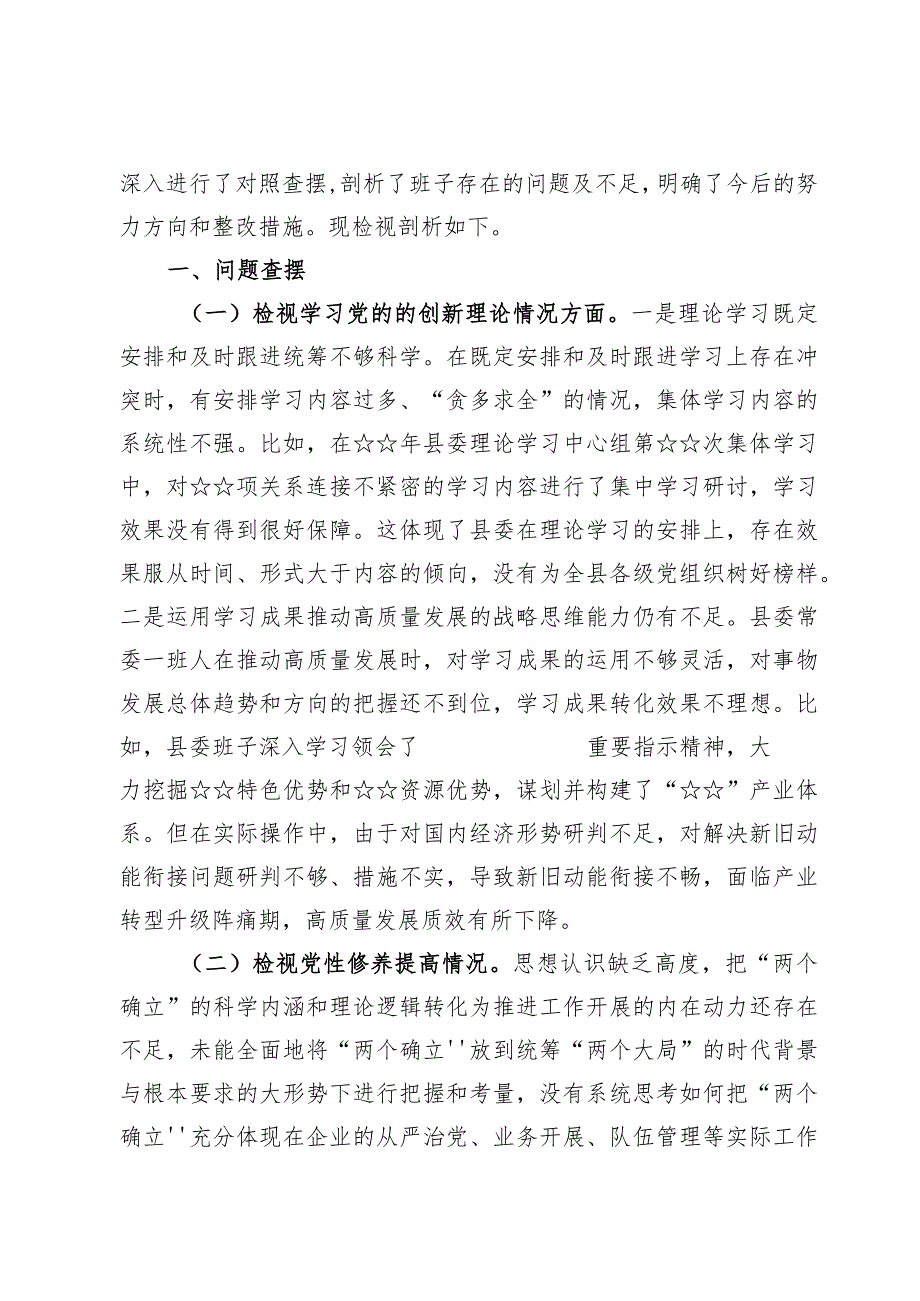 深入进行了对照查摆,剖析了班子存在的问题及不足，明确了今后的努
力方向和整改措施。现检视剖析如下。
一、问题查摆
（一）检视学习党的的创新理论情况方面。一是理论学习既定
安排和及时跟进统筹不够科学。在既定安排和及时跟进学习上存在冲
突时，有安排学习内容过多、“贪多求全”的情况，集体学习内容的
系统性不强。比如，在☆☆年县委理论学习中心组第☆☆次集体学习
中，对☆☆项关系连接不紧密的学习内容进行了集中学习研讨，学习
效果没有得到很好保障。这体现了县委在理论学习的安排上，存在效
果服从时间、形式大于内容的倾向，没有为全县各级党组织树好榜样。
二是运用学习成果推动高质量发展的战略思维能力仍有不足。县委常
委一班人在推动高质量发展时，对学习成果的运用不够灵活，对事物
发展总体趋势和方向的把握还不到位，学习成果转化效果不理想。比
如，县委班子深入学习领会了 重要指示精神，大
力挖掘☆☆特色优势和☆☆资源优势，谋划并构建了“☆☆”产业体
系。但在实际操作中，由于对国内经济形势研判不足，对解决新旧动
能衔接问题研判不够、措施不实，导致新旧动能衔接不畅，面临产业
转型升级阵痛期，高质量发展质效有所下降。
（二）检视党性修养提高情况。思想认识缺乏高度，把“两个
确立”的科学内涵和理论逻辑转化为推进工作开展的内在动力还存在
不足，未能全面地将“两个确立''放到统筹“两个大局”的时代背景
与根本要求的大形势下进行把握和考量，没有系统思考如何把“两个
确立''充分体现在企业的从严治党、业务开展、队伍管理等实际工作